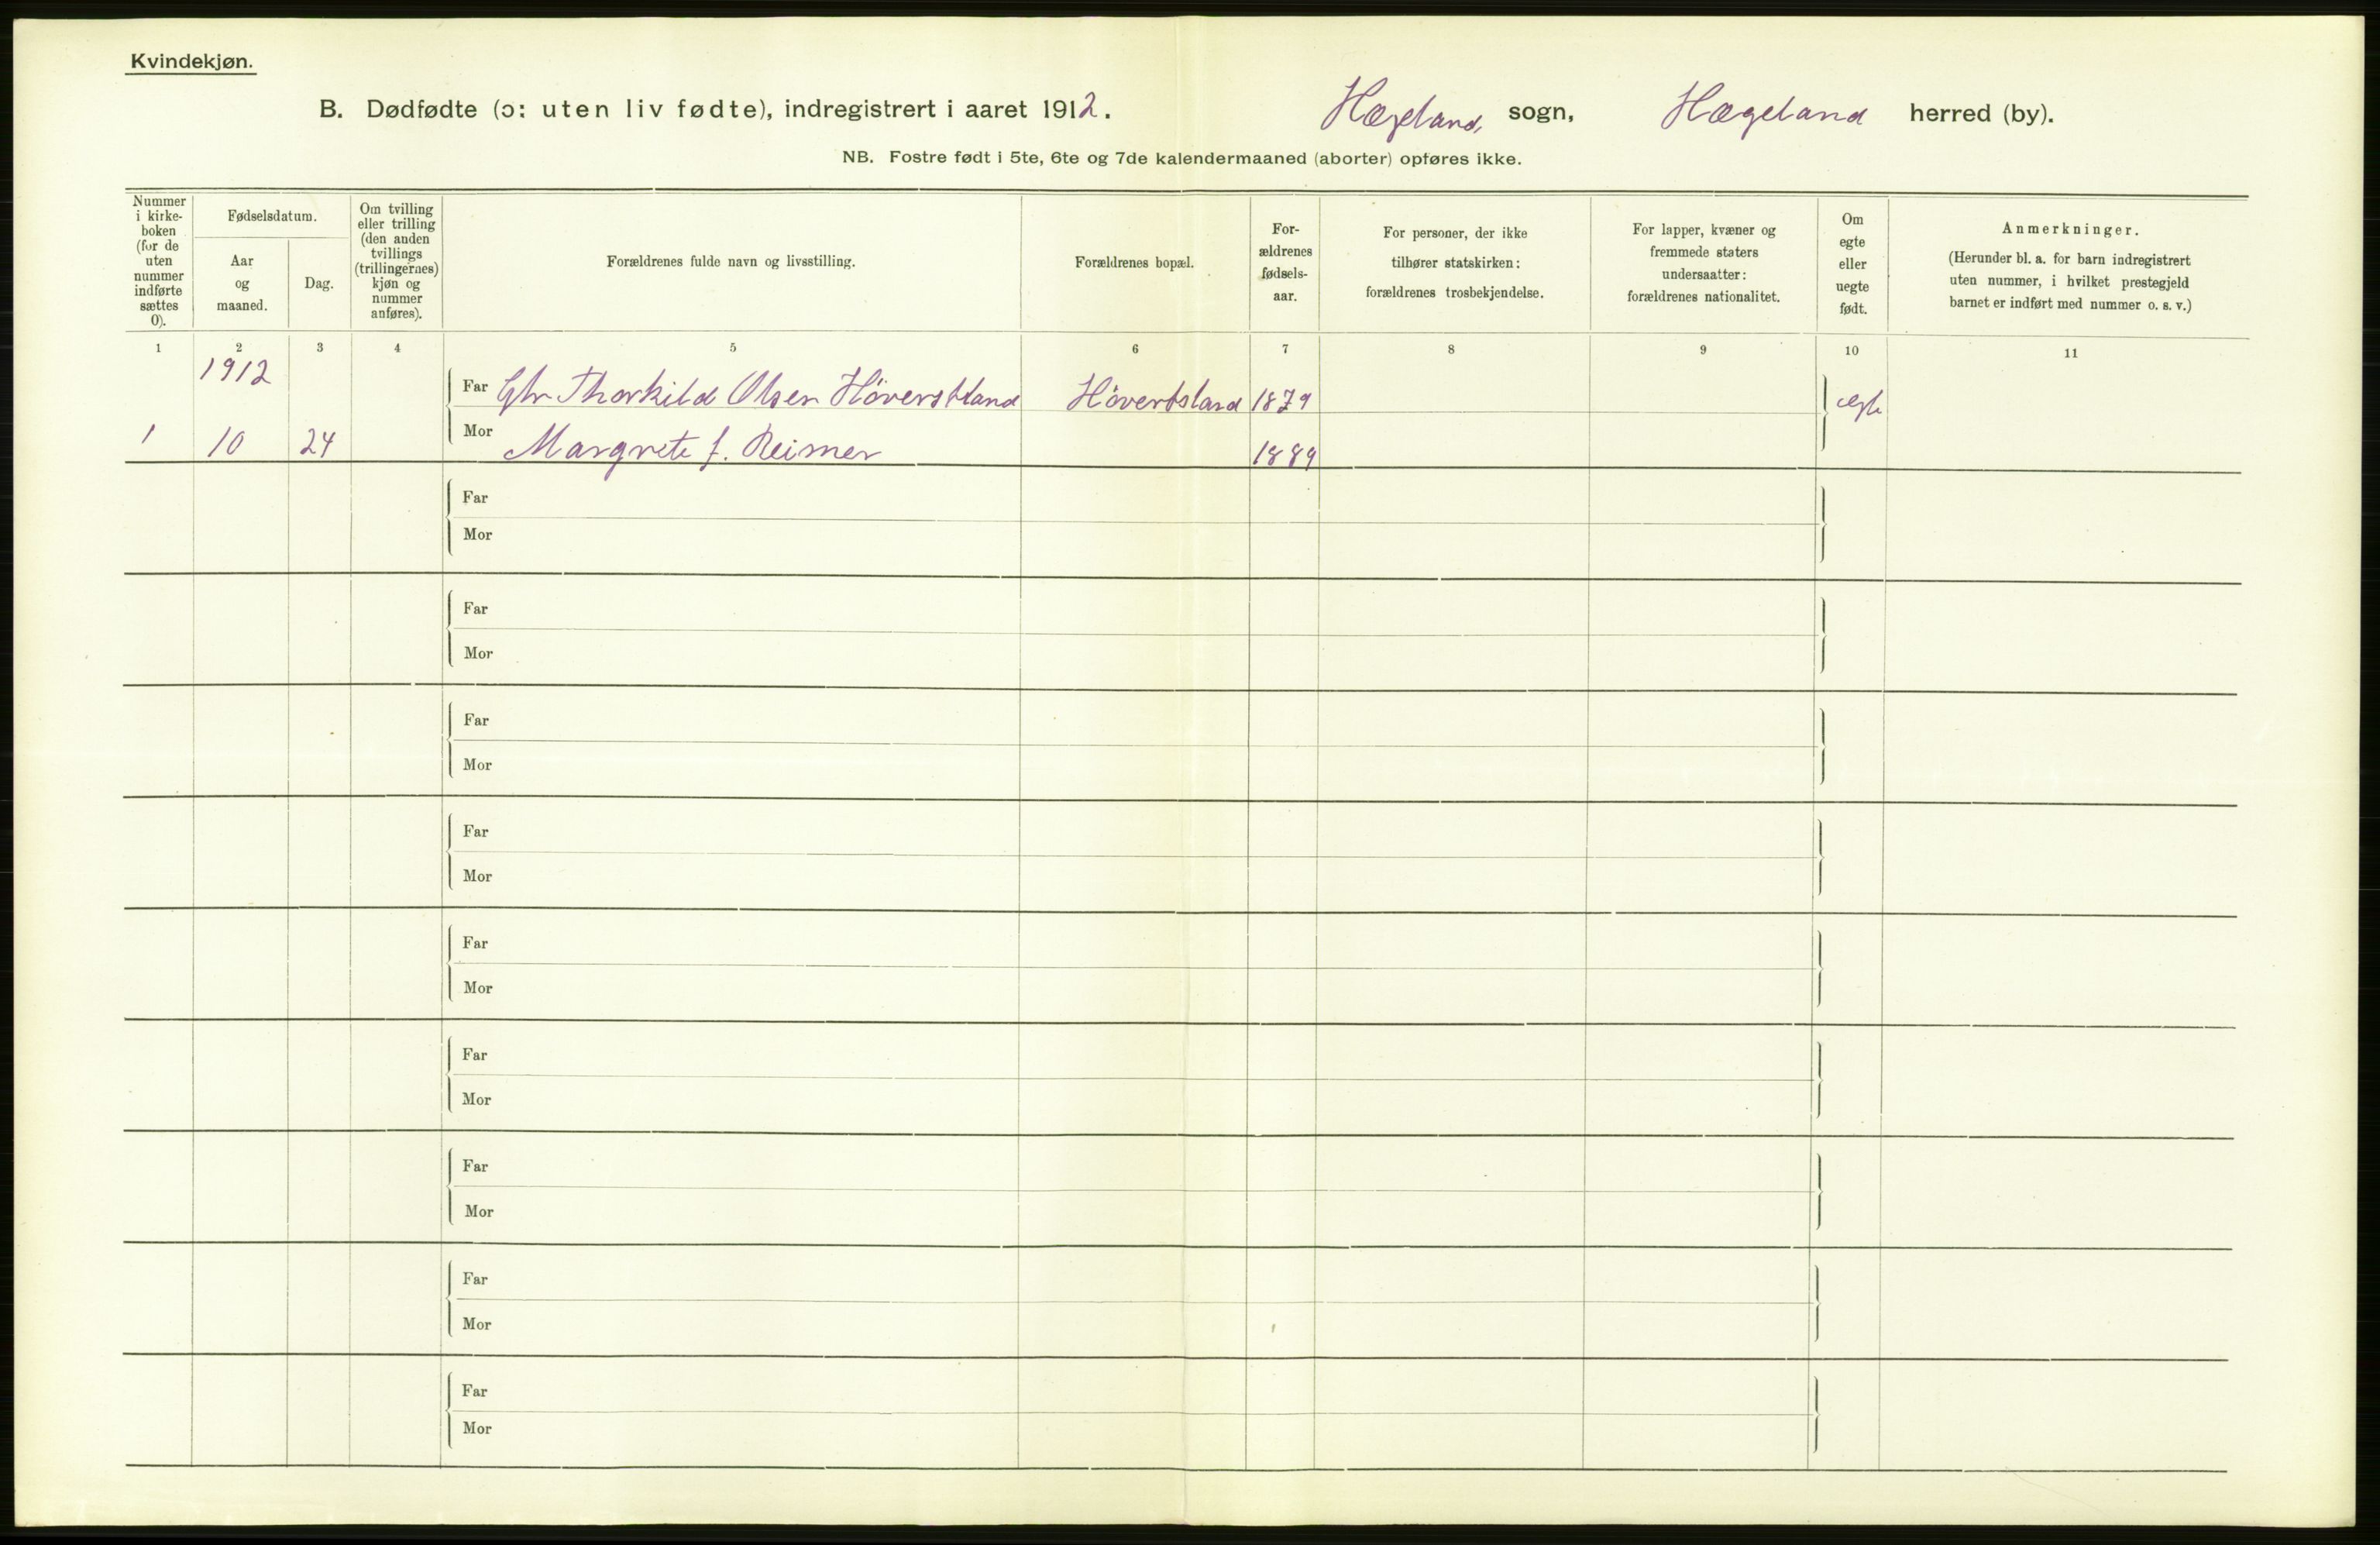 Kvindekjøn.
B. Dødfødte (ɔ: uten liv fødte), indregistrert i aaret 1912. Hægeland sogn, Hægeland herred (by).
NB. Fostre født i 5te, 6te og 7de kalendermaaned (aborter) opføres ikke.
Nummer
i kirke-
boken
(for de
uten
nummer
indførte
sættes
0).
Fødselsdatum.
Aar
og
maaned.
Dag.
Om tvilling
eller trilling
(den anden
tvillings
(trillingernes)
kjøn og
nummer
anføres).
Forældrenes fulde navn og livsstilling.
Forældrenes bopæl.
For-
ældrenes
fødsels-
aar.
For personer, der ikke
tilhører statskirken:
forældrenes trosbekjendelse.
For lapper, kvæner og
fremmede staters
undersaatter:
forældrenes nationalitet.
Om
egte
eller
uegte
født.
Anmerkninger.
(Herunder bl. a. for barn indregistrert
uten nummer, i hvilket prestegjeld
barnet er indført med nummer o. s. v.)
1 2 3 4 5 6 7 8 9 10 11
1912
Far Thorkild Olsen 1879 egte
1 10 24 Mor Margrete f. Reimer 1889
Far
Mor
Far
Mor
Far
Mor
Far
Mor
Far
Mor
Far
Mor
Far
Mor
Far
Mor
Far
Mor